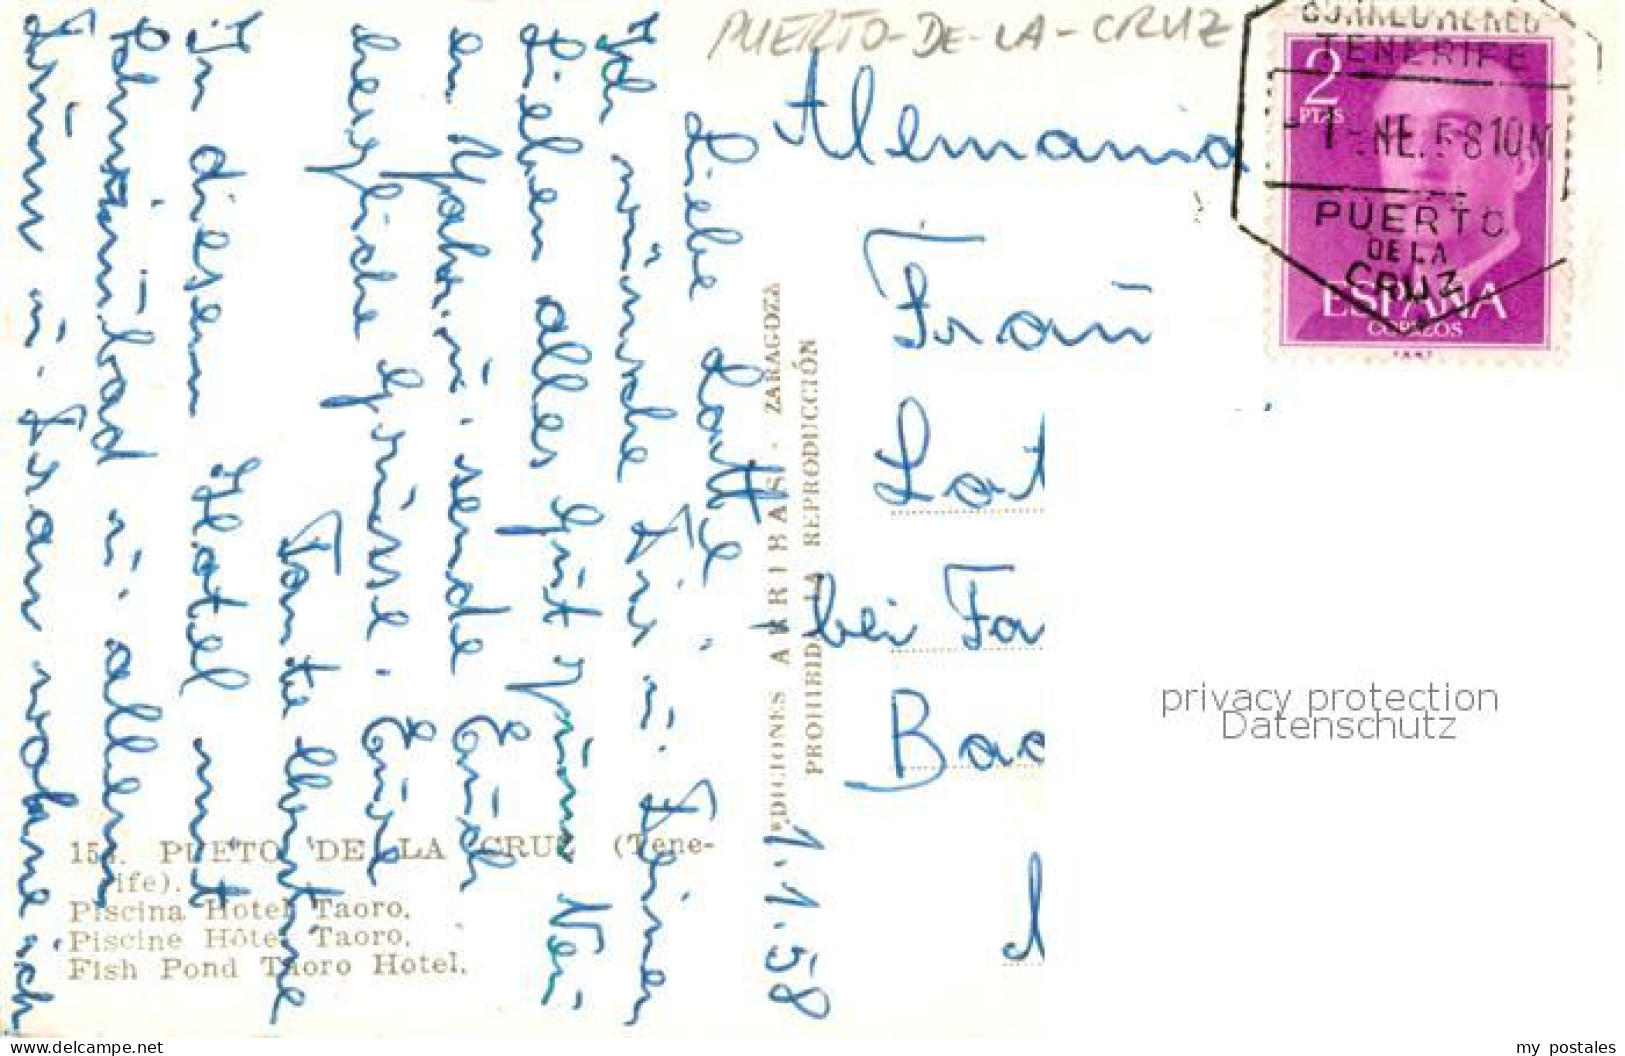 PUERTO-DE-LA-CRUZ
CORREO AEREO
TENERIFE
-1 ENE. 58 10M
PUERTO
DE LA
CRUZ
2
PTAS
ESPAÑA
CORREOS
Alemania
Fraü
Lot
bei Fa
Bad
1.1.58
Liebe Lotte!
Ich wünsche Dir ü. Deinen
Lieben alles Güt zum Neü
en Jahrü. sende Eüch
herzliche Grüsse. Eüre
Tante
In diesem Hotel mit
Schwimmbad ü. allem
ü. daran wohne ich
EDICIONES ARRIBAS - ZARAGOZA
PROHIBIDA LA REPRODUCCIÓN
PUETO DE LA CRUZ (Tene-
rife).
Piscina Hotel Taoro.
Piscine Hôtel Taoro.
Fish Pond Taoro Hotel.
privacy protection
Datenschutz
delcampe.net
my_postales